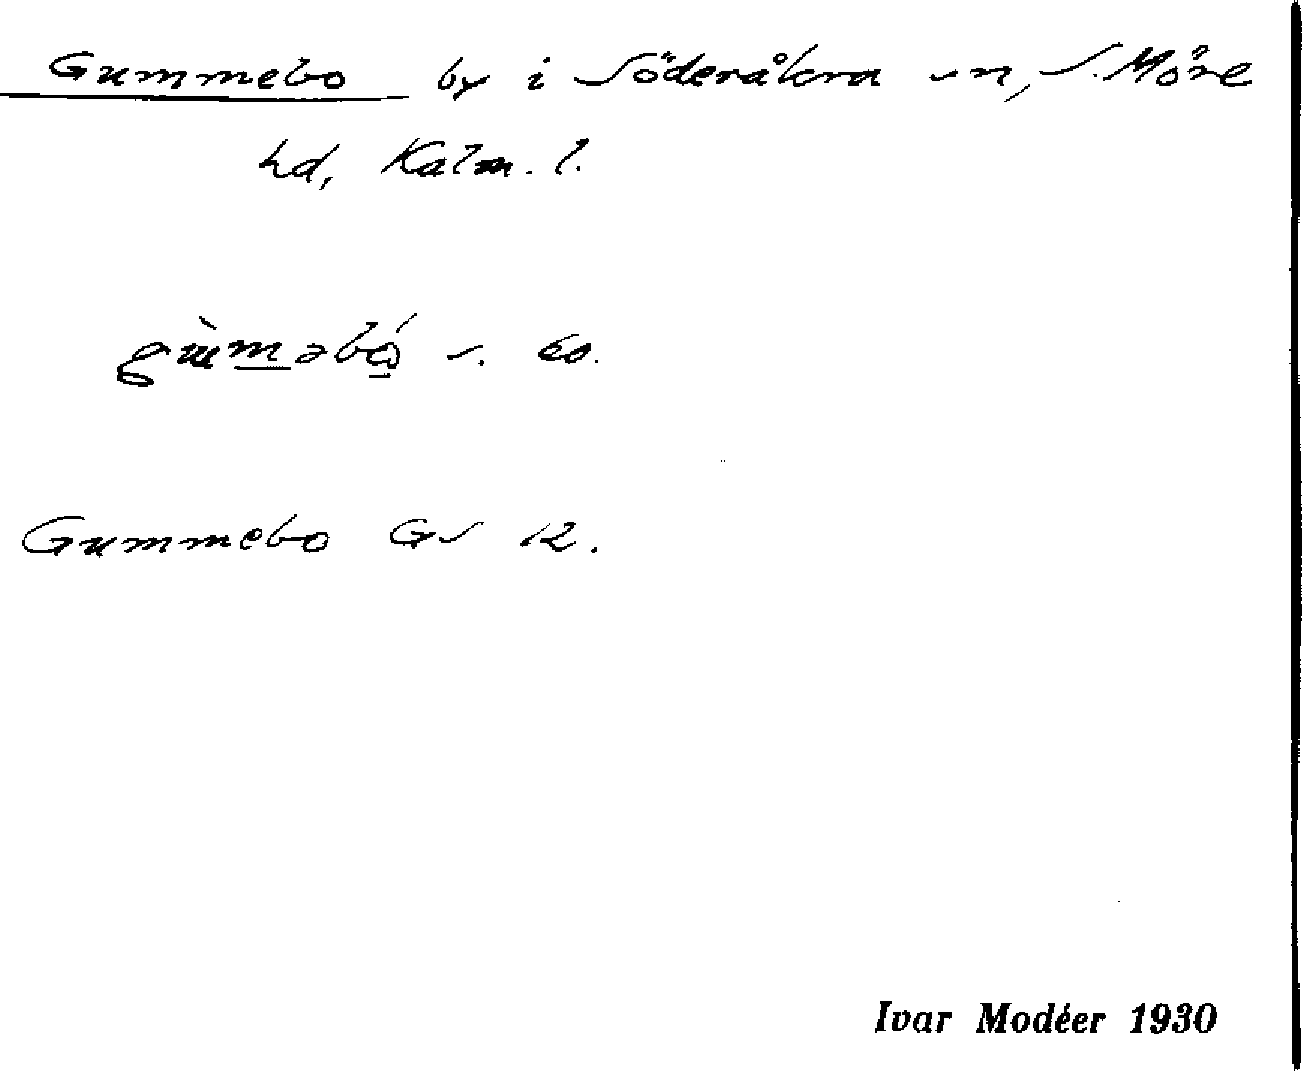 Gummebo by i Söderåkra sn, S. Möre
hd, Kalm. l.
Gummebo GS 12.
Ivar Modéer 1930